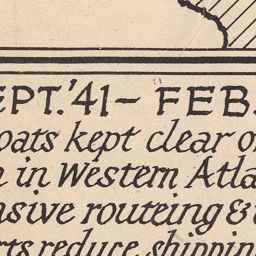 EPT. '41 – FEB.
oats kept clear o
n in Western Atla
nsive routeing &
rts reduce shippin